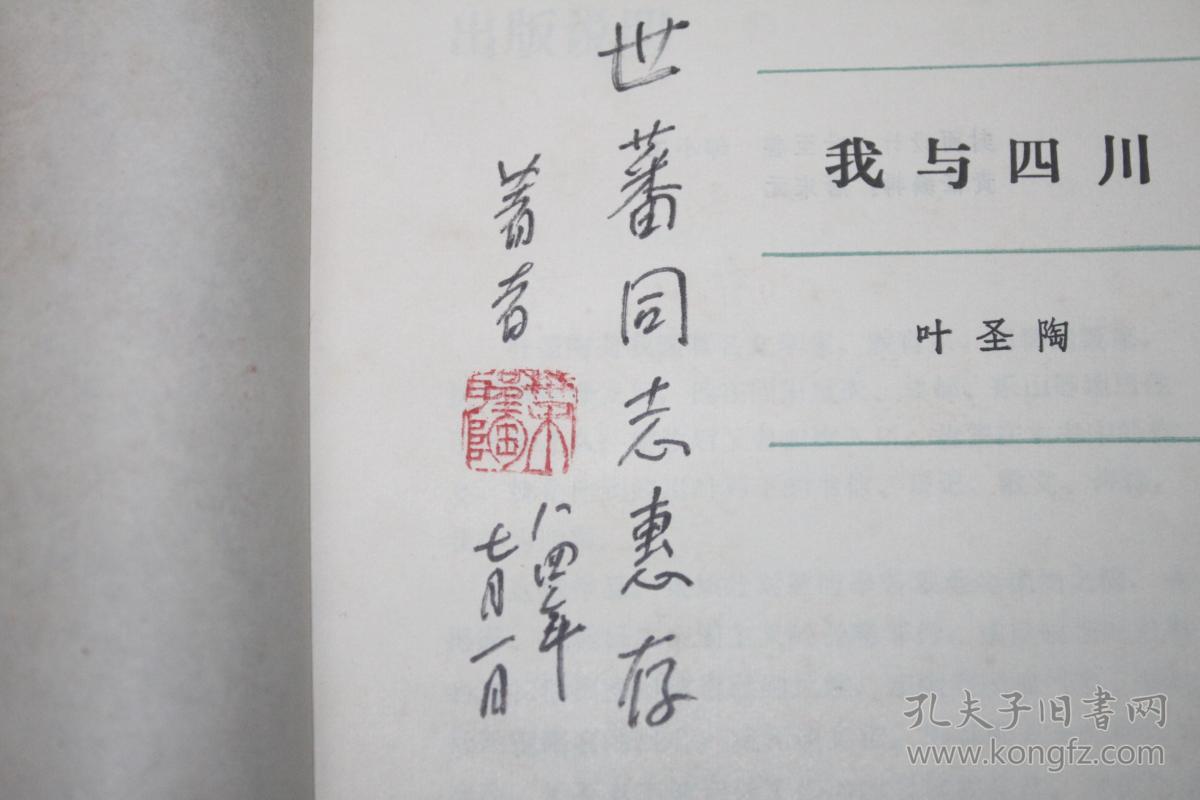 世蕃同志惠存
著者
八四年
七月一日
我与四川
叶圣陶
孔夫子旧书网
www.kongfz.com